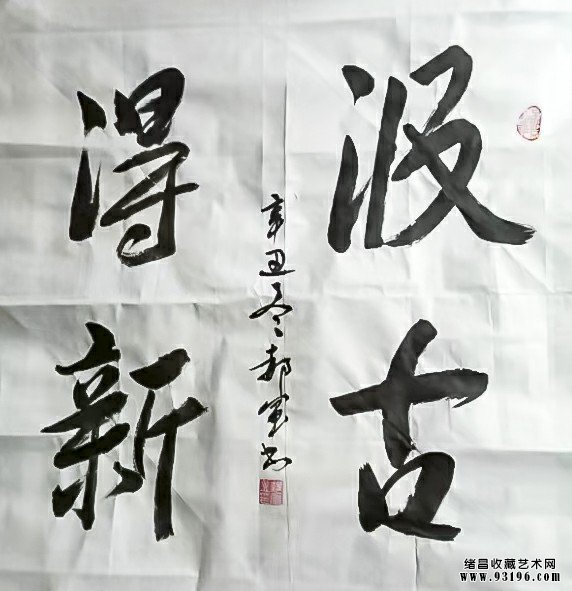 汲古
得新
辛丑冬
绪昌收藏艺术网
www.93196.com